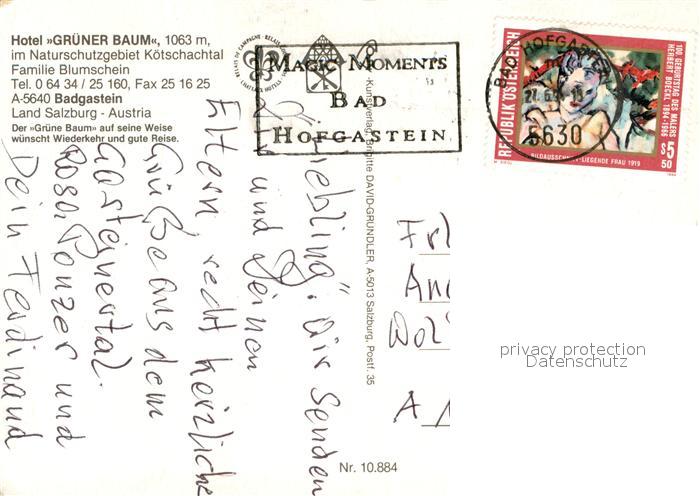 Hotel »GRÜNER BAUM«, 1063 m,
im Naturschutzgebiet Kötschachtal
Familie Blumschein
Tel. 0 64 34 / 25 160, Fax 25 16 25
A-5640 Badgastein
Land Salzburg - Austria
Der »Grüne Baum« auf seine Weise
wünscht Wiederkehr und gute Reise.
RELAIS DE CAMPAGNE - RELAIS
MAGIC MOMENTS
BAD
HOFGASTEIN
Kunstverlag Brigitte DAVID-GRUNDLER, A-5013 Salzburg, Postf. 35
Nr. 10.884
BAD HOFGASTEIN
5630
REPUBLIK ÖSTERREICH
100. GEBURTSTAG DES MALERS
HERBERT BOECKL 1894-1966
S 5
50
BILDAUSSCHNITT-LIEGENDE FRAU 1919
Liebling". Dir senden
und Deinen
Eltern, recht herzliche
Grüße aus dem
Gasteinertal.
Rosa, Panzer und
Dein Ferdinand
Frl
An
A
privacy protection
Datenschutz